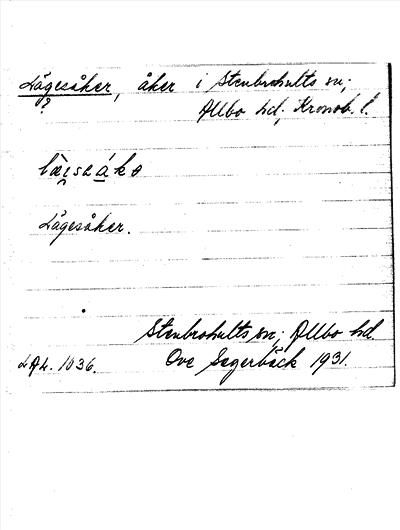 Lägesåker, åker i Stenbrohults sn;
?
Allbo hd, Kronob. l.
Lägesåker.
Stenbrohults sn; Allbo hd.
LAL. 1036. Ove Segerbäck 1931.